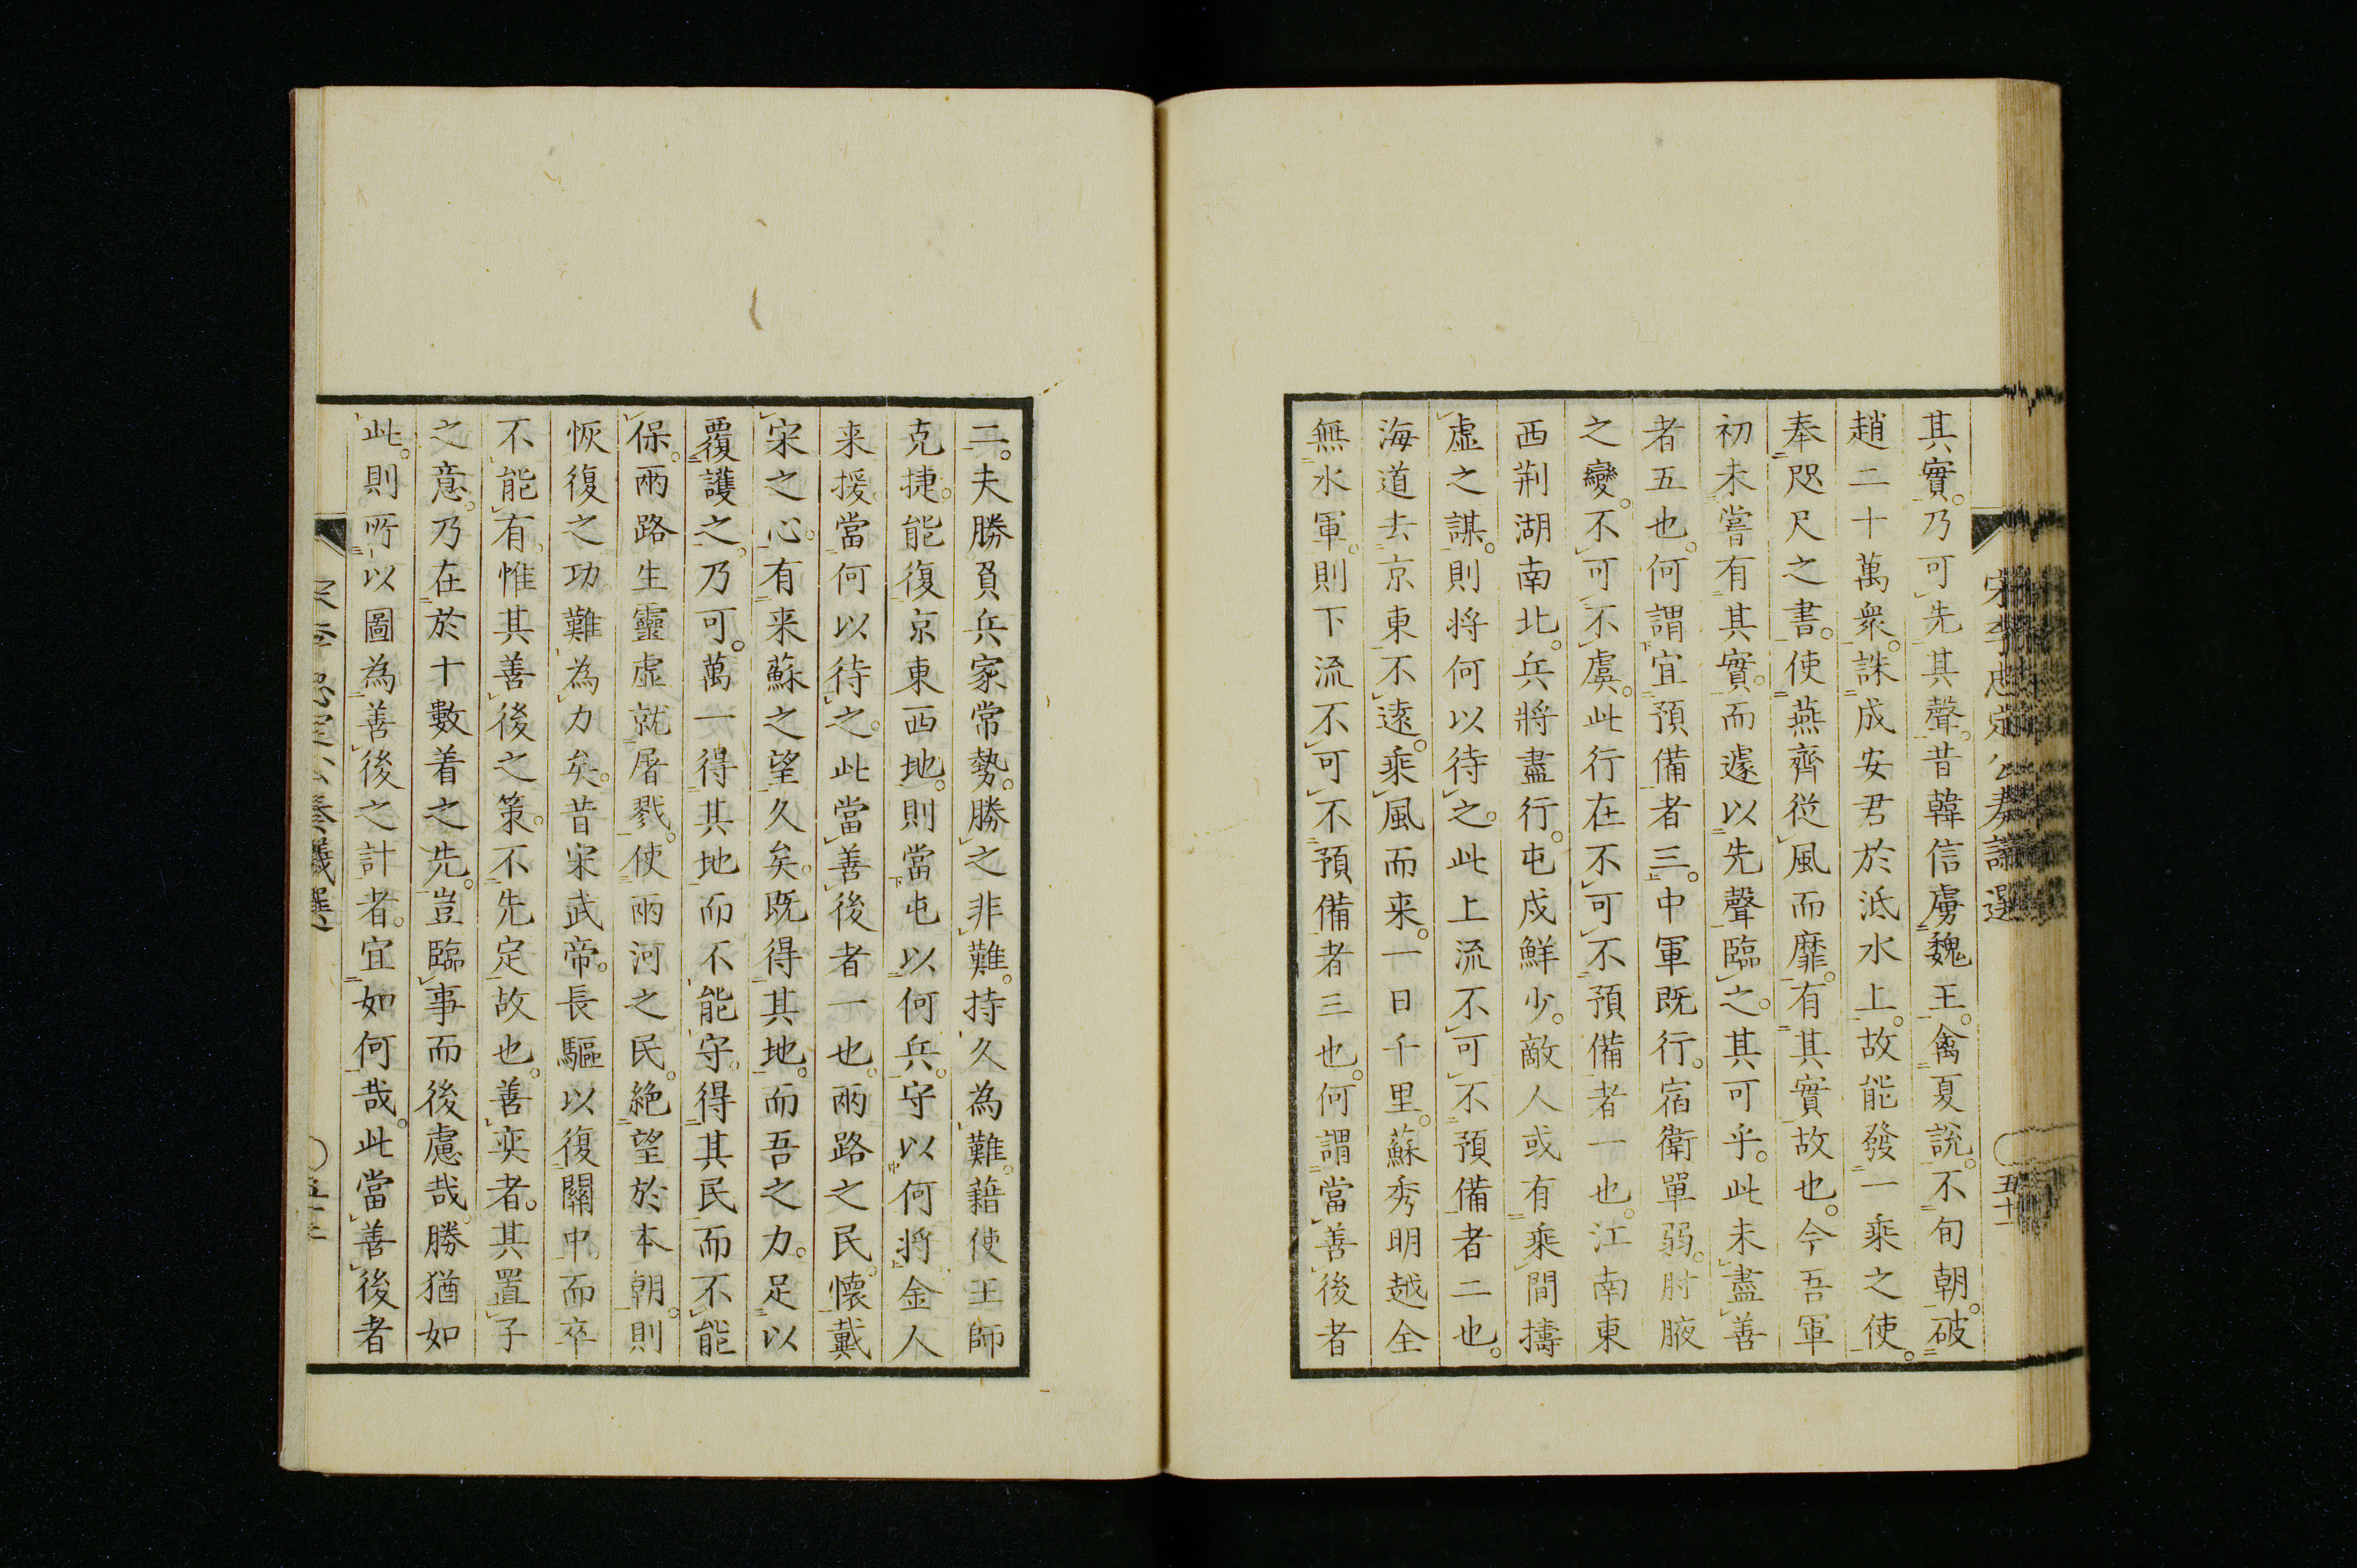 其實。乃可先其聲。昔韓信虜魏王。禽夏說。不旬朝。破
趙二十萬衆。誅成安君於泜水上。故能發一乘之使。
奉咫尺之書。使燕齊從風而靡。有其實故也。今吾軍
初未嘗有其實。而遽以先聲臨之。其可乎。此未盡善
者五也。何謂宜預備者三。中軍既行。宿衛單弱。肘腋
之變。不可不虞。此行在不可不預備者一也。江南東
西荆湖南北。兵將盡行。屯戍鮮少。敵人或有乘間擣
虛之謀。則將何以待之。此上流不可不預備者二也。
海道去京東不遠。乘風而来。一日千里。蘇秀明越全
無水軍。則下流不可不預備者三也。何謂當善後者
二。夫勝負兵家常勢。勝之非難。持久為難。藉使王師
克捷。能復京東西地。則當屯以何兵。守以何將金人
来援。當何以待之。此當善後者一也。兩路之民。懷戴
宋之心。有来蘇之望久矣。既得其地。而吾之力。足以
覆護之。乃可。萬一得其地而不能守。得其民而不能
保。兩路生靈虛就屠戮。使兩河之民。絶望於本朝。則
恢復之功難為力矣。昔宋武帝。長驅以復關中。而卒
不能有。惟其善後之策。不先定故也。善奕者。其置子
之意。乃在於十數着之先。豈臨事而後慮哉。勝猶如
此。則所以圖為善後之計者。宜如何哉。此當善後者
宋李忠定公奏議選
五十一